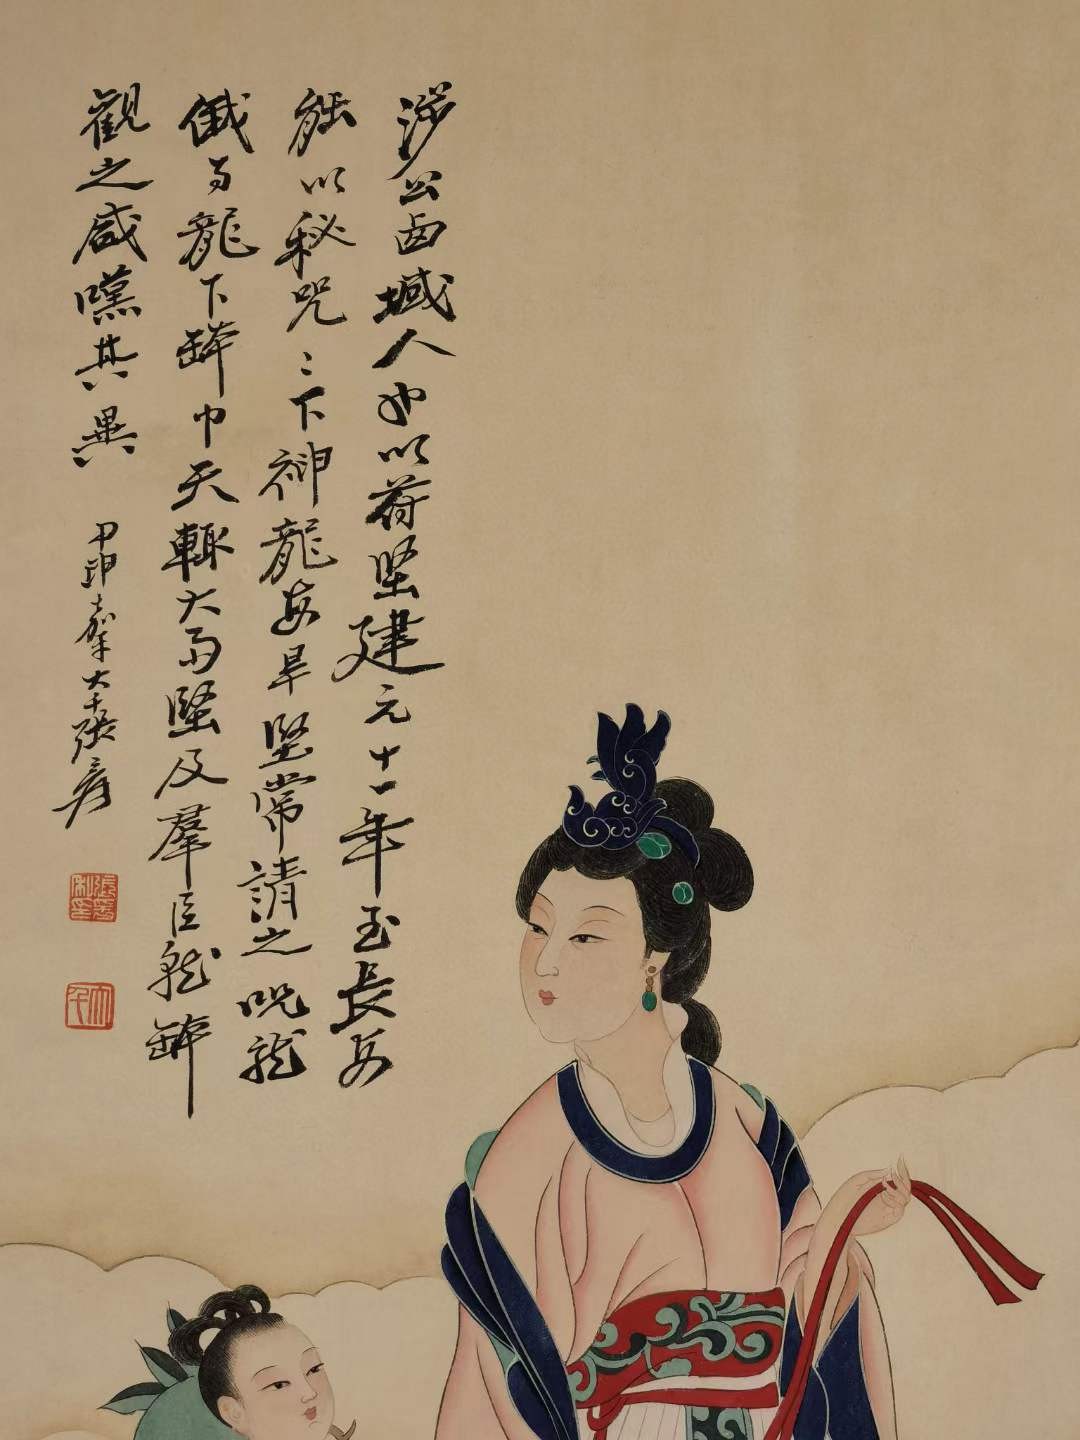 涉公西域人也以苻堅建元十一年至長安
能以秘咒〻下神龍每旱堅常請之呪龍
俄而龍下鉢中天輒大雨堅及羣臣就鉢
觀之咸嘆其異
甲申 大千張爰
張爰私印
大千